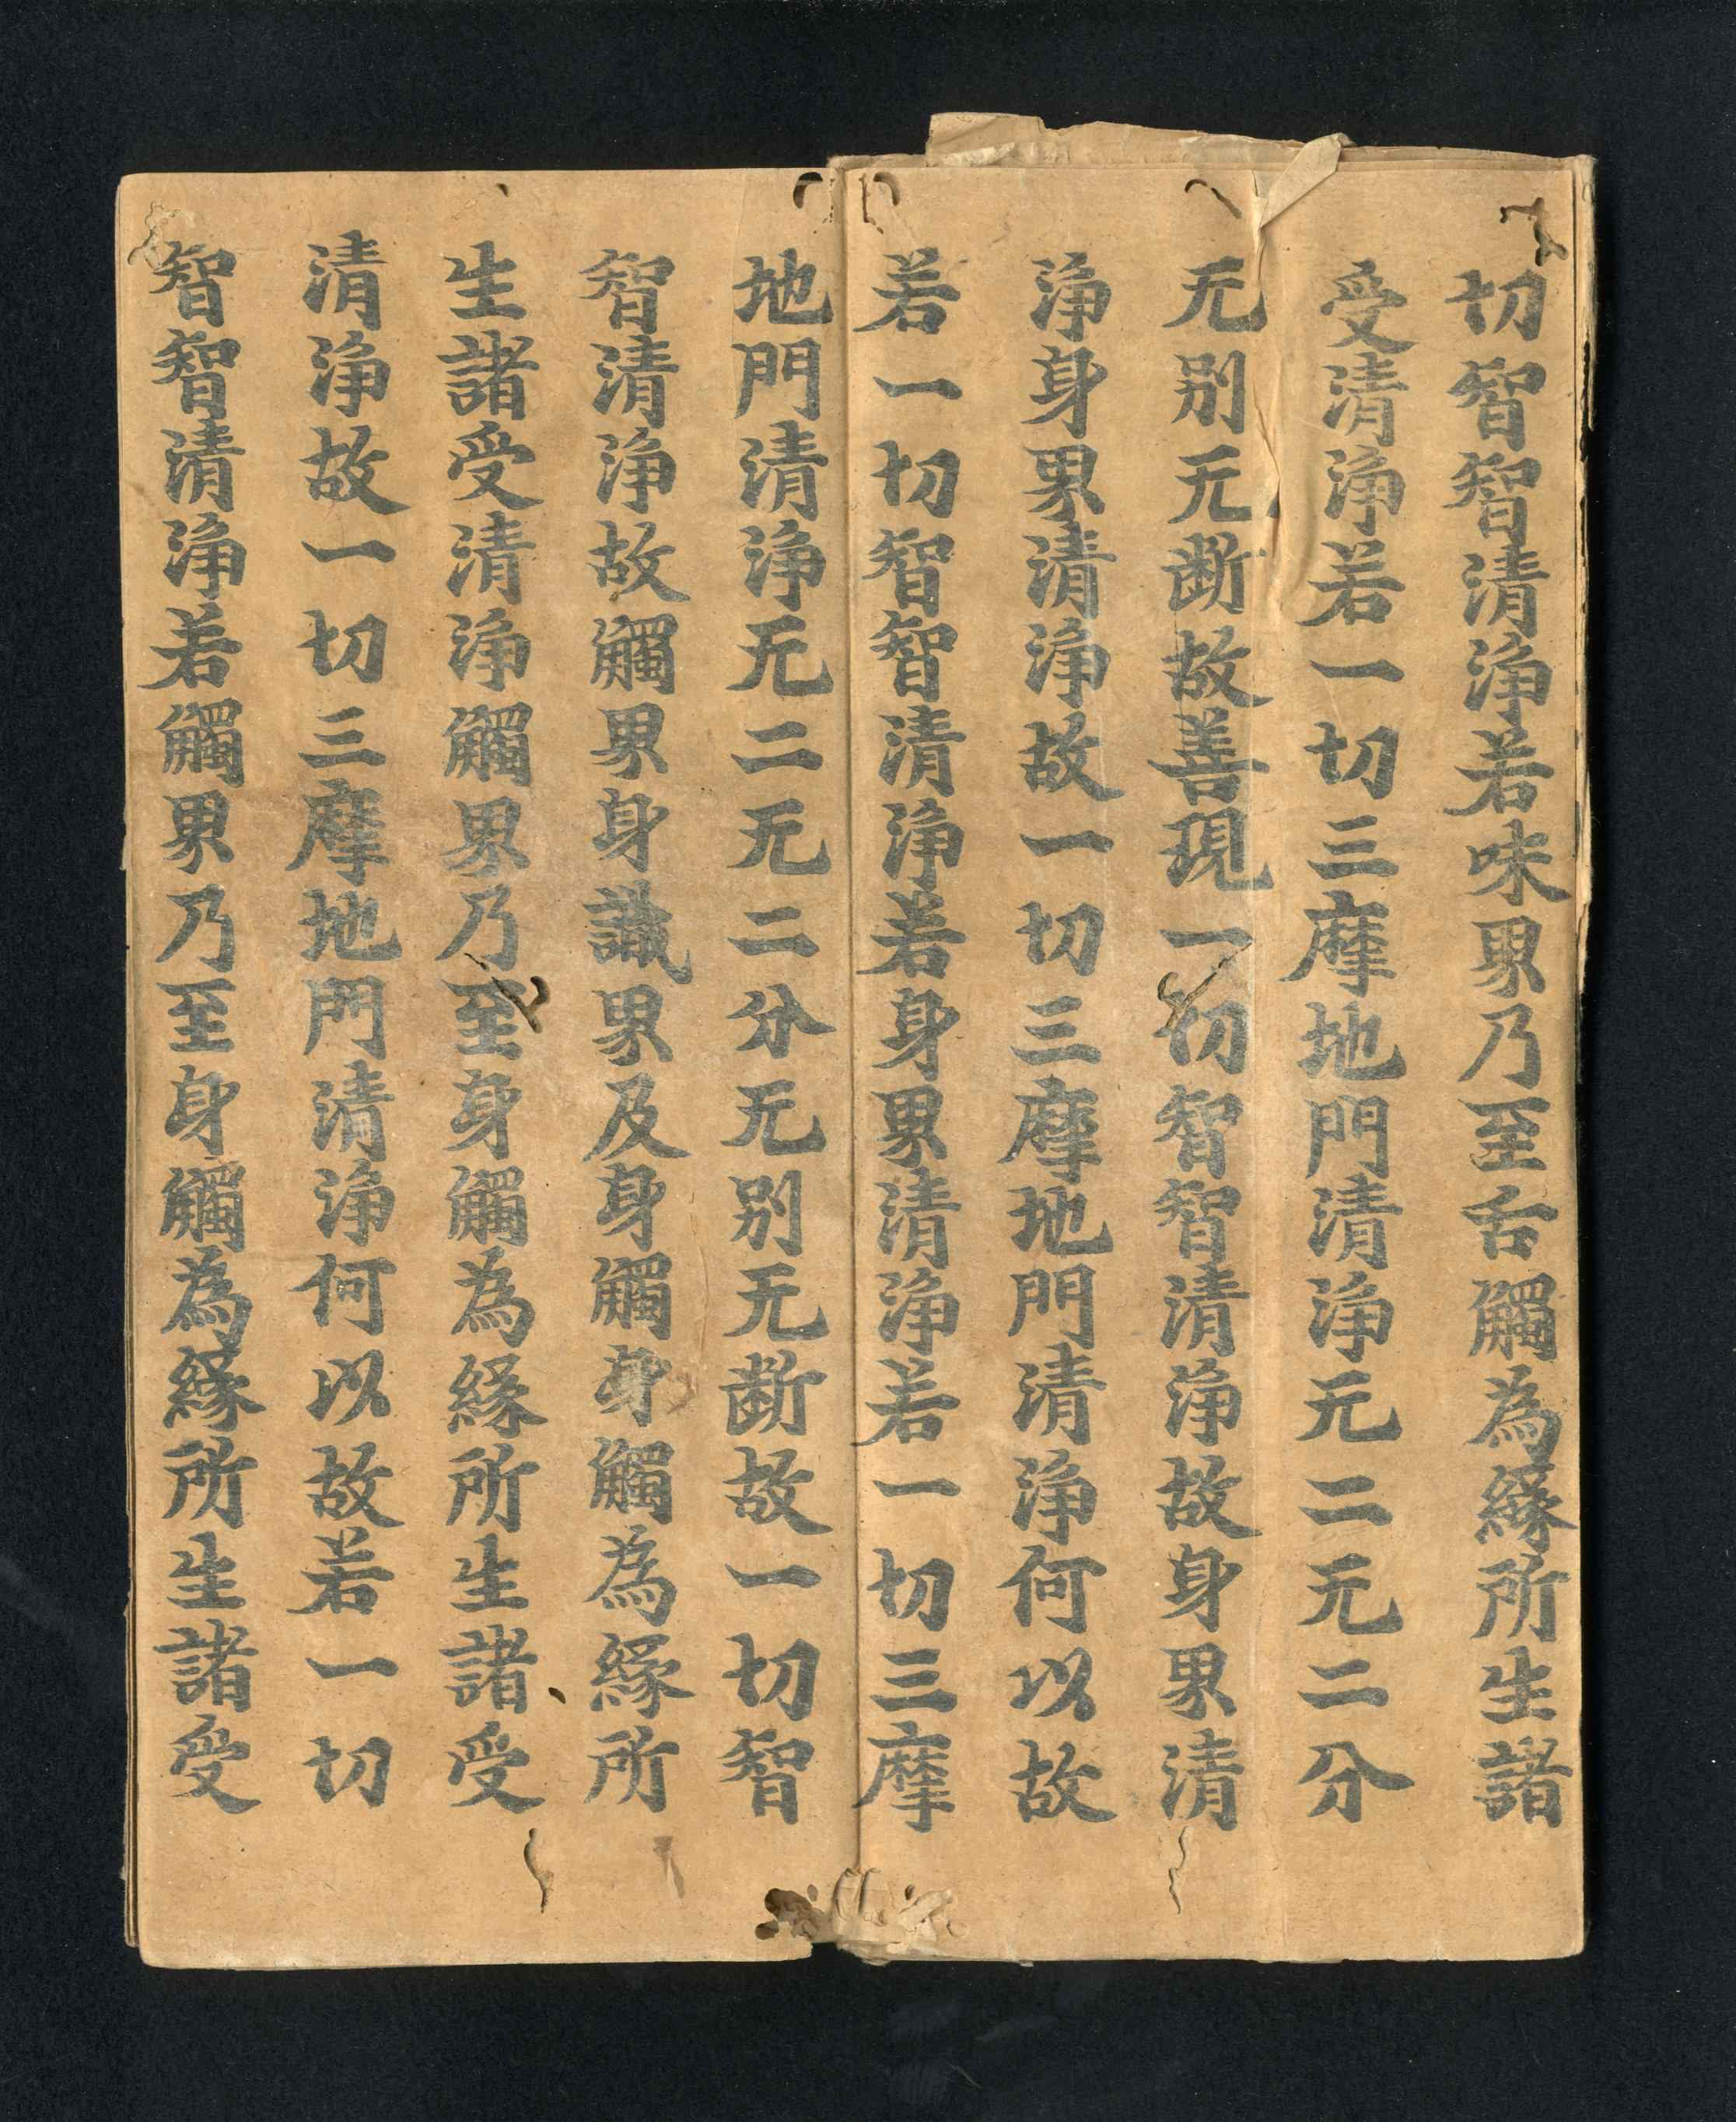 切智智清淨若味界乃至舌觸為緣所生諸
受清淨若一切三摩地門清淨无二无二分
无別无斷故善現一切智智清淨故身界清
淨身界清淨故一切三摩地門清淨何以故
若一切智智清淨若身界清淨若一切三摩
地門清淨无二无二分无別无斷故一切智
智清淨故觸界身識界及身觸身觸為緣所
生諸受清淨觸界乃至身觸為緣所生諸受
清淨故一切三摩地門清淨何以故若一切
智智清淨若觸界乃至身觸為緣所生諸受